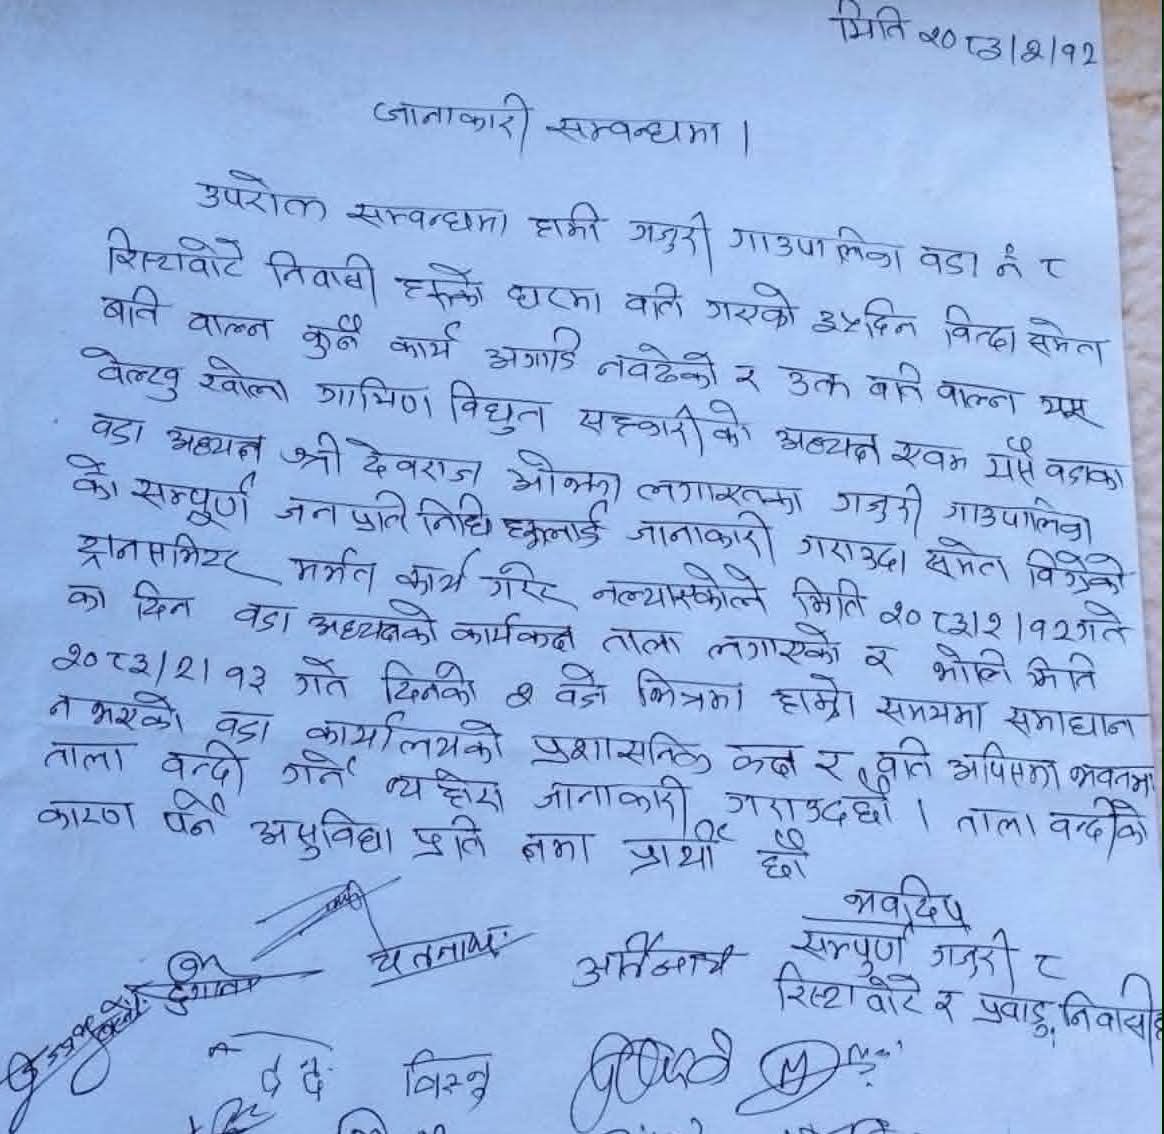 मिति २०८३/२/१२
जानाकारी सम्वन्धमा ।
उपरोक्त सम्वन्धमा हामी गजुरी गाउपालिका वडा नं ८
रिस्टावोटे निवासी हरुको घरमा वति गएको ३५दिन वित्दा समेत
बति वाल्न कुनै कार्य अगाडि नवढेको र उक्त बति वाल्न यस
वेल्खु खोला ग्रामिण विधुत सहकारीको अध्यक्ष एवम यसै वडाका
वडा अध्यक्ष श्री देवराज ओझा लगाएतका गजुरी गाउपालिका
का सम्पूर्ण जनप्रतिनिधि हरुलाई जानाकारी गराउदा समेत विग्रेको
ट्रानसमिटर मर्मत कार्य गरेर नल्याएकोले मिति २०८३।२।१२गते
का दिन वडा अध्यक्षको कार्यकक्ष ताला लगाएको र भोलि मिति
२०८३/२।१३ गते दिनको २ वजे भित्रमा हाम्रो समयमा समाधान
नभएको वडा कार्यालयको प्रशासनिक कक्ष र वति अफिसका भवनमा
ताला वन्दी गर्ने व्यहोरा जानाकारी गराउदछौ । ताला वन्दीको
कारण पर्ने असुविधा प्रति क्षमा प्रार्थी छौ
भवदिय
सम्पूर्ण गजुरी ८
रिस्टावोटे र प्रवाडु निवासी
चेतनाथ
विस्नु